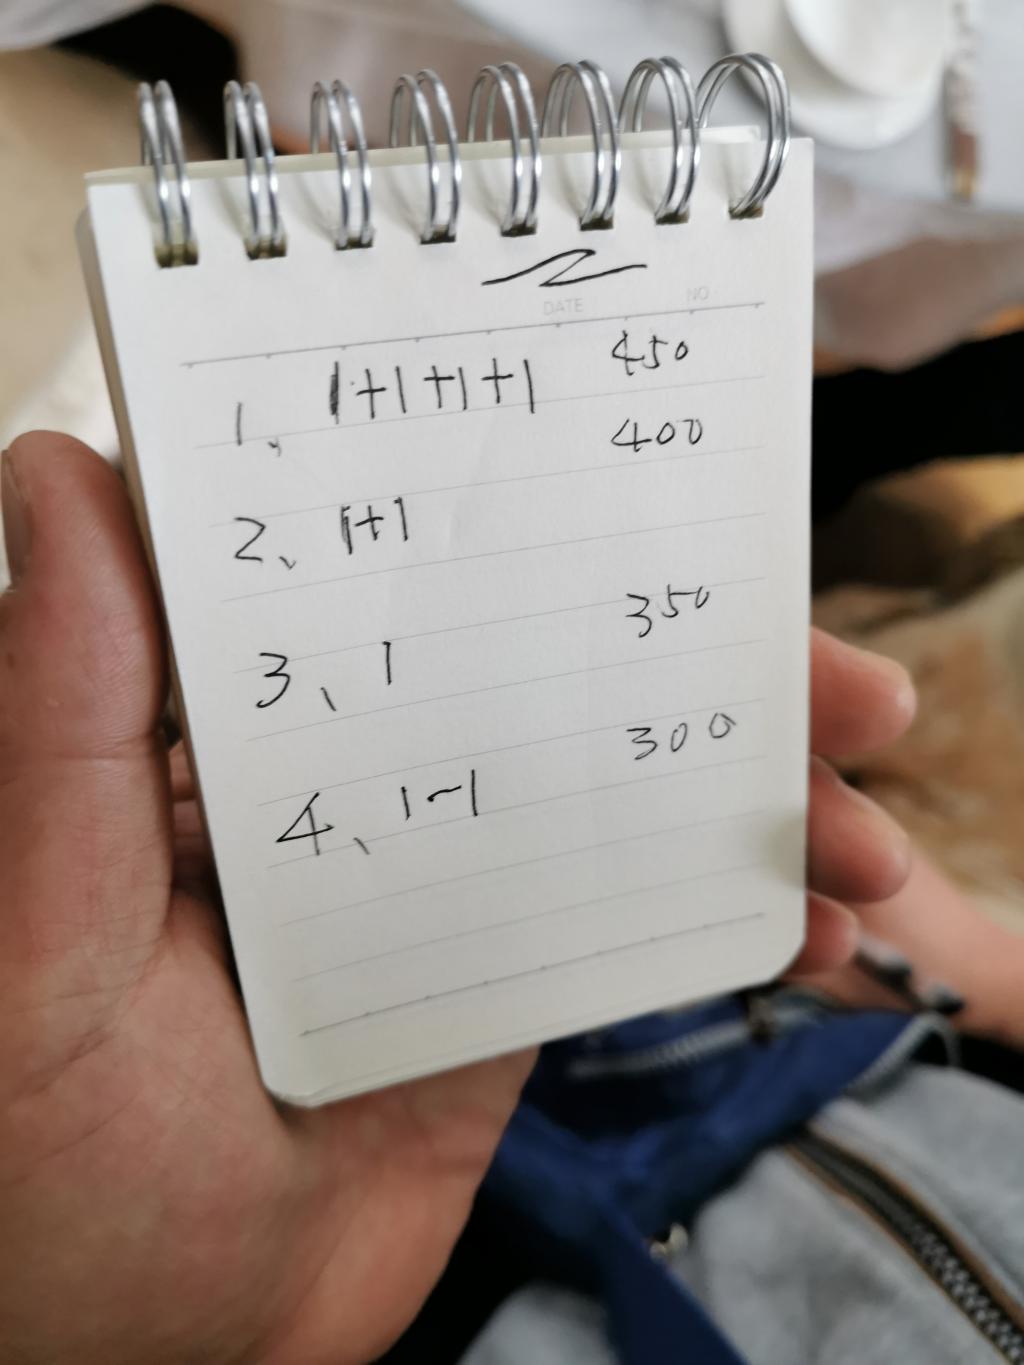 DATE NO
1、 1+1+1+1 450
400
2、 1+1
350
3、 1
300
4、 1-1